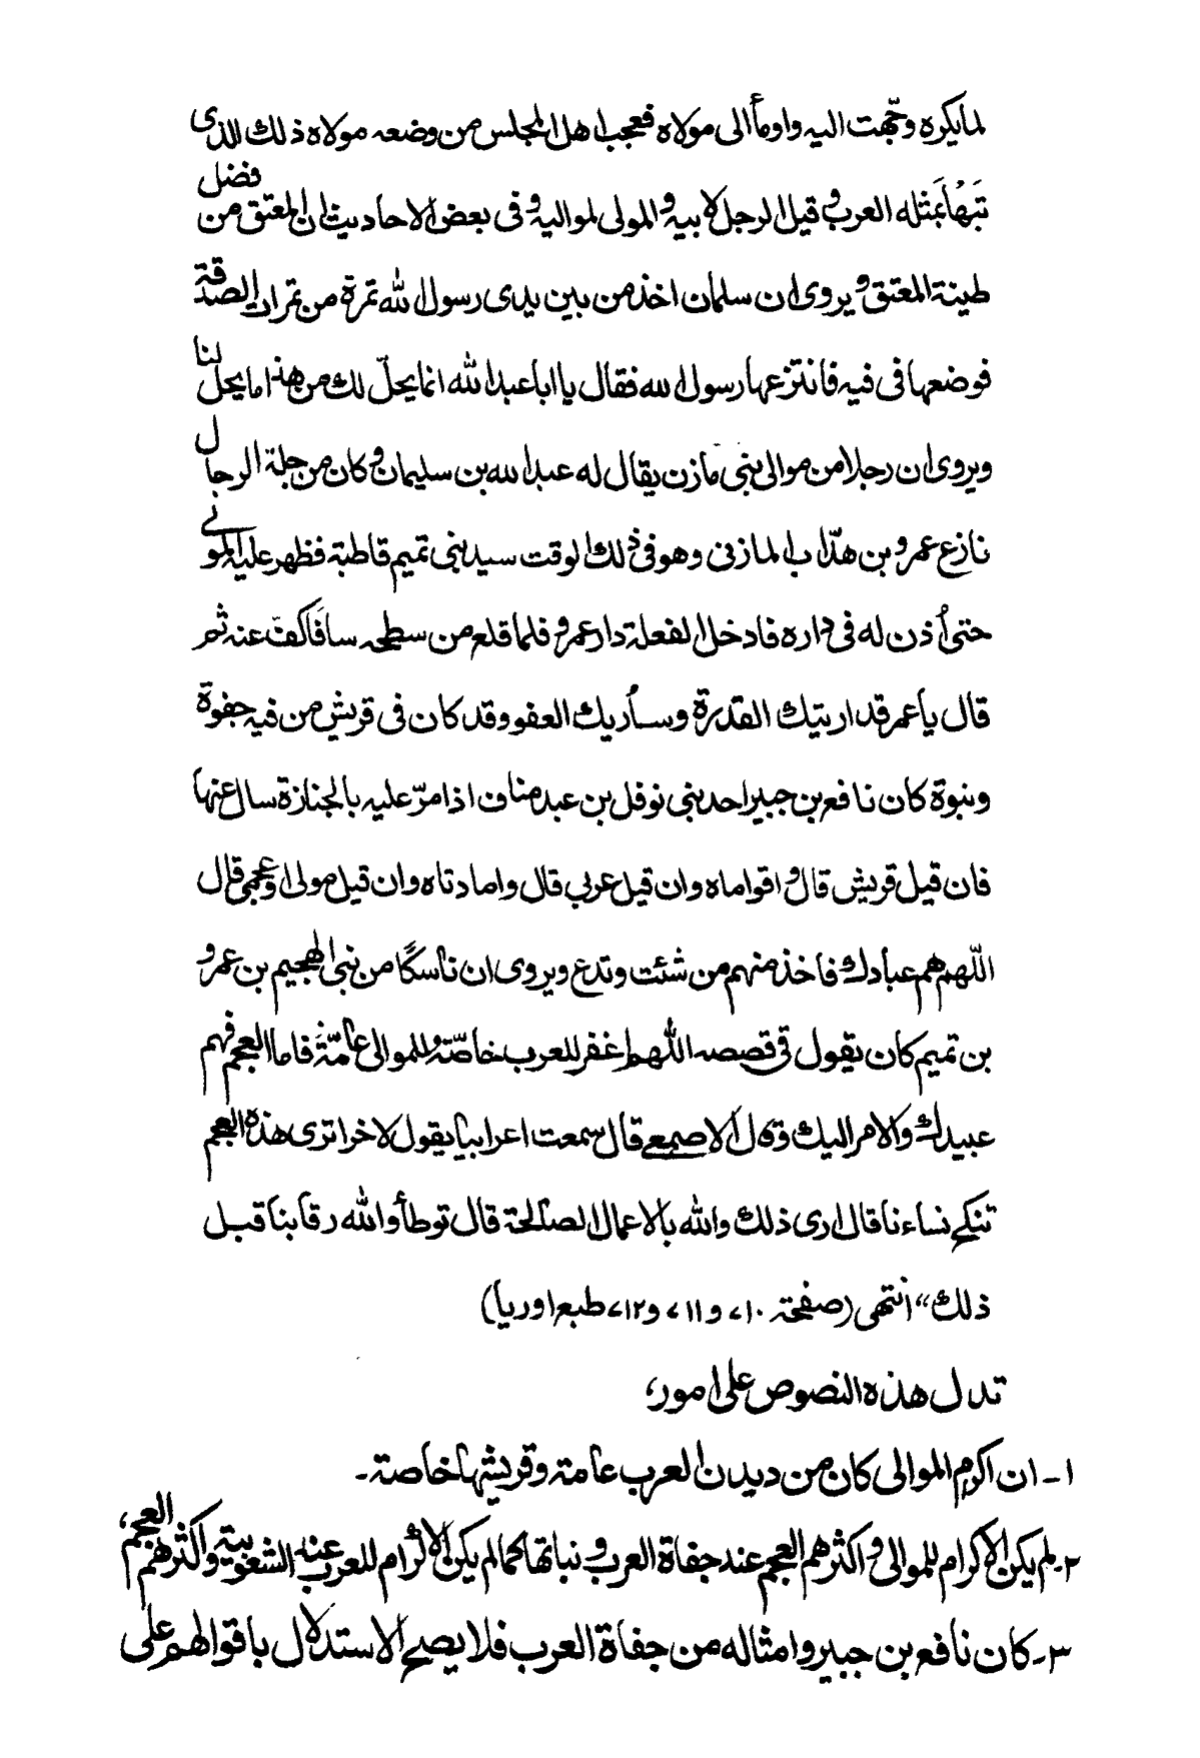 لما يكره وتجهت اليه واومأ الى مولاه فعجب اهل المجلس من وضعه مولاه ذلك الذى
تبهأ بمثله العرب وقيل الرجل لابيه والمولى لمواليه وفى بعض الاحاديث ان المعتق من فضل
طينة المعتق ويروى ان سلمان اخذ من بين يدى رسول الله تمرة من تمرات الصدقة
فوضعها فى فيه فانتزعها رسول الله فقال يا ابا عبد الله انما يحلّ لك من هذا ما يحل لنا
ويروى ان رجلا من موالى بنى مازن يقال له عبد الله بن سليمان وكان من جلة الرجال
نازع عمرو بن هدّاب المازنى وهو فى ذلك الوقت سيد بنى تميم قاطبة فظهر عليه المولى
حتى أُذن له فى داره فادخل الفعلة دار عمرو فلما قلع من سطحه سافا كفّ عنه ثم
قال يا عمر قد اريتك القدرة وسأريك العفو وقد كان فى قريش من فيه جفوة
ونبوة كان نافع بن جبير احد بنى نوفل بن عبد مناف اذا مرّ عليه بالجنازة سال عنها
فان قيل قريش قال واقوماه وان قيل عربى قال وامادتاه وان قيل مولى او عجمى قال
اللّهم هم عبادك فاخذ منهم من شئت وتدع ويروى ان ناسكًا من بنى الهجيم بن عمرو
بن تميم كان يقول فى قصصه اللّهم اغفر للعرب خاصّة وللموالى عامّة فاما العجم فهم
عبيدك والامر اليك وقال الاصمعى قال سمعت اعرابيا يقول لاخر اترى هذه العجم
تنكح نساءنا قال ارى ذلك والله بالاعمال الصالحة قال توطأ والله رقابنا قبل
ذلك" انتهى (صفحة ٧١٠ و ٧١١ و٧١٢ طبع اوربا)
تدل هذه النصوص على امور،
١ـ ان اكرام الموالى كان من ديدن العرب عامة وقريشها خاصة۔
٢ـ لم يكن الاكرام للموالى واكثرهم العجم عند جفاة العرب ونباتها كما لم يكن الاكرام للعرب عند الشعوبية واكثرهم العجم،
٣ـ كان نافع بن جبير وامثاله من جفاة العرب فلا يصح الاستدلال باقوالهم على